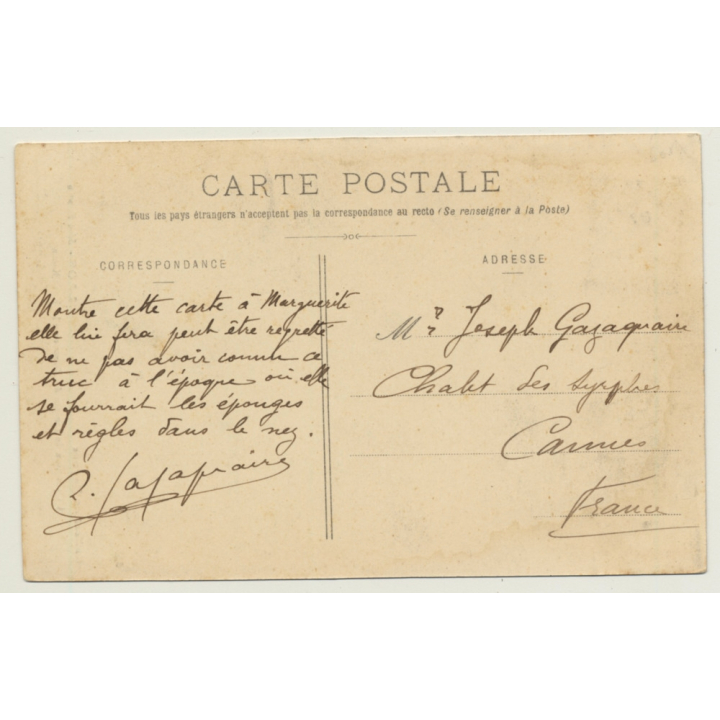 CARTE POSTALE
Tous les pays étrangers n'acceptent pas la correspondance au recto (Se renseigner à la Poste)
CORRESPONDANCE
Montre cette carte à Marguerite
elle lui fera peut être regretté
de ne pas avoir connu ce
truc à l'époque où elle
se fourrait les éponges
et règles dans le nez.
ADRESSE
Mr Joseph
Chalet des
Cannes
France